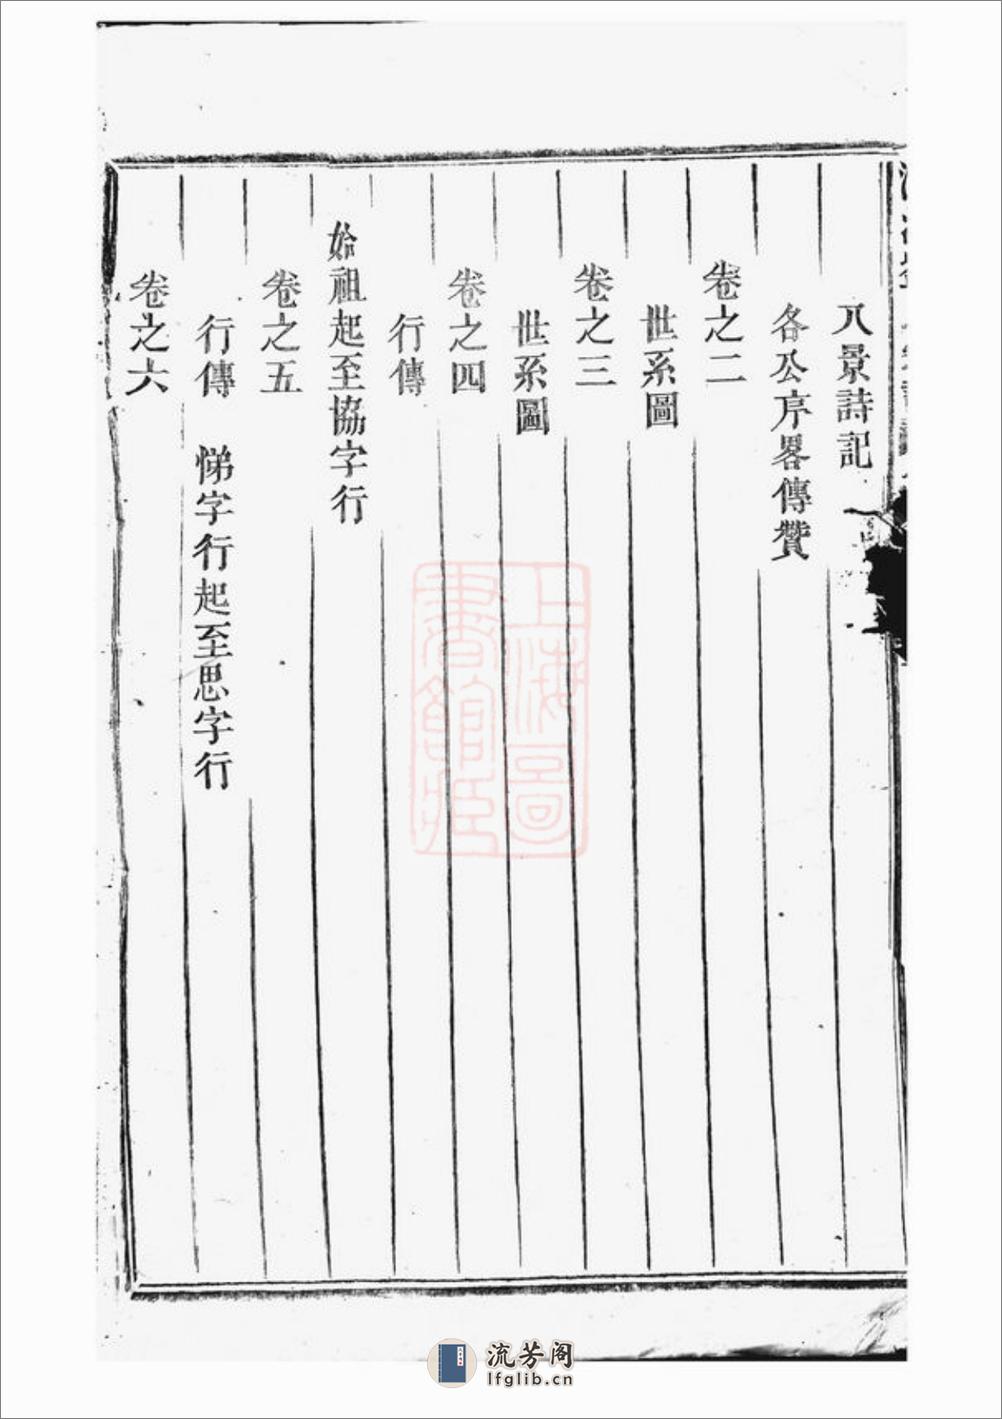 八景詩記
各公序畧傳贊
卷之二
世系圖
卷之三
世系圖
卷之四
行傳
始祖起至協字行
卷之五
行傳 悌字行起至思字行
卷之六
上海圖
書館藏
流芳阁
lfglib.cn